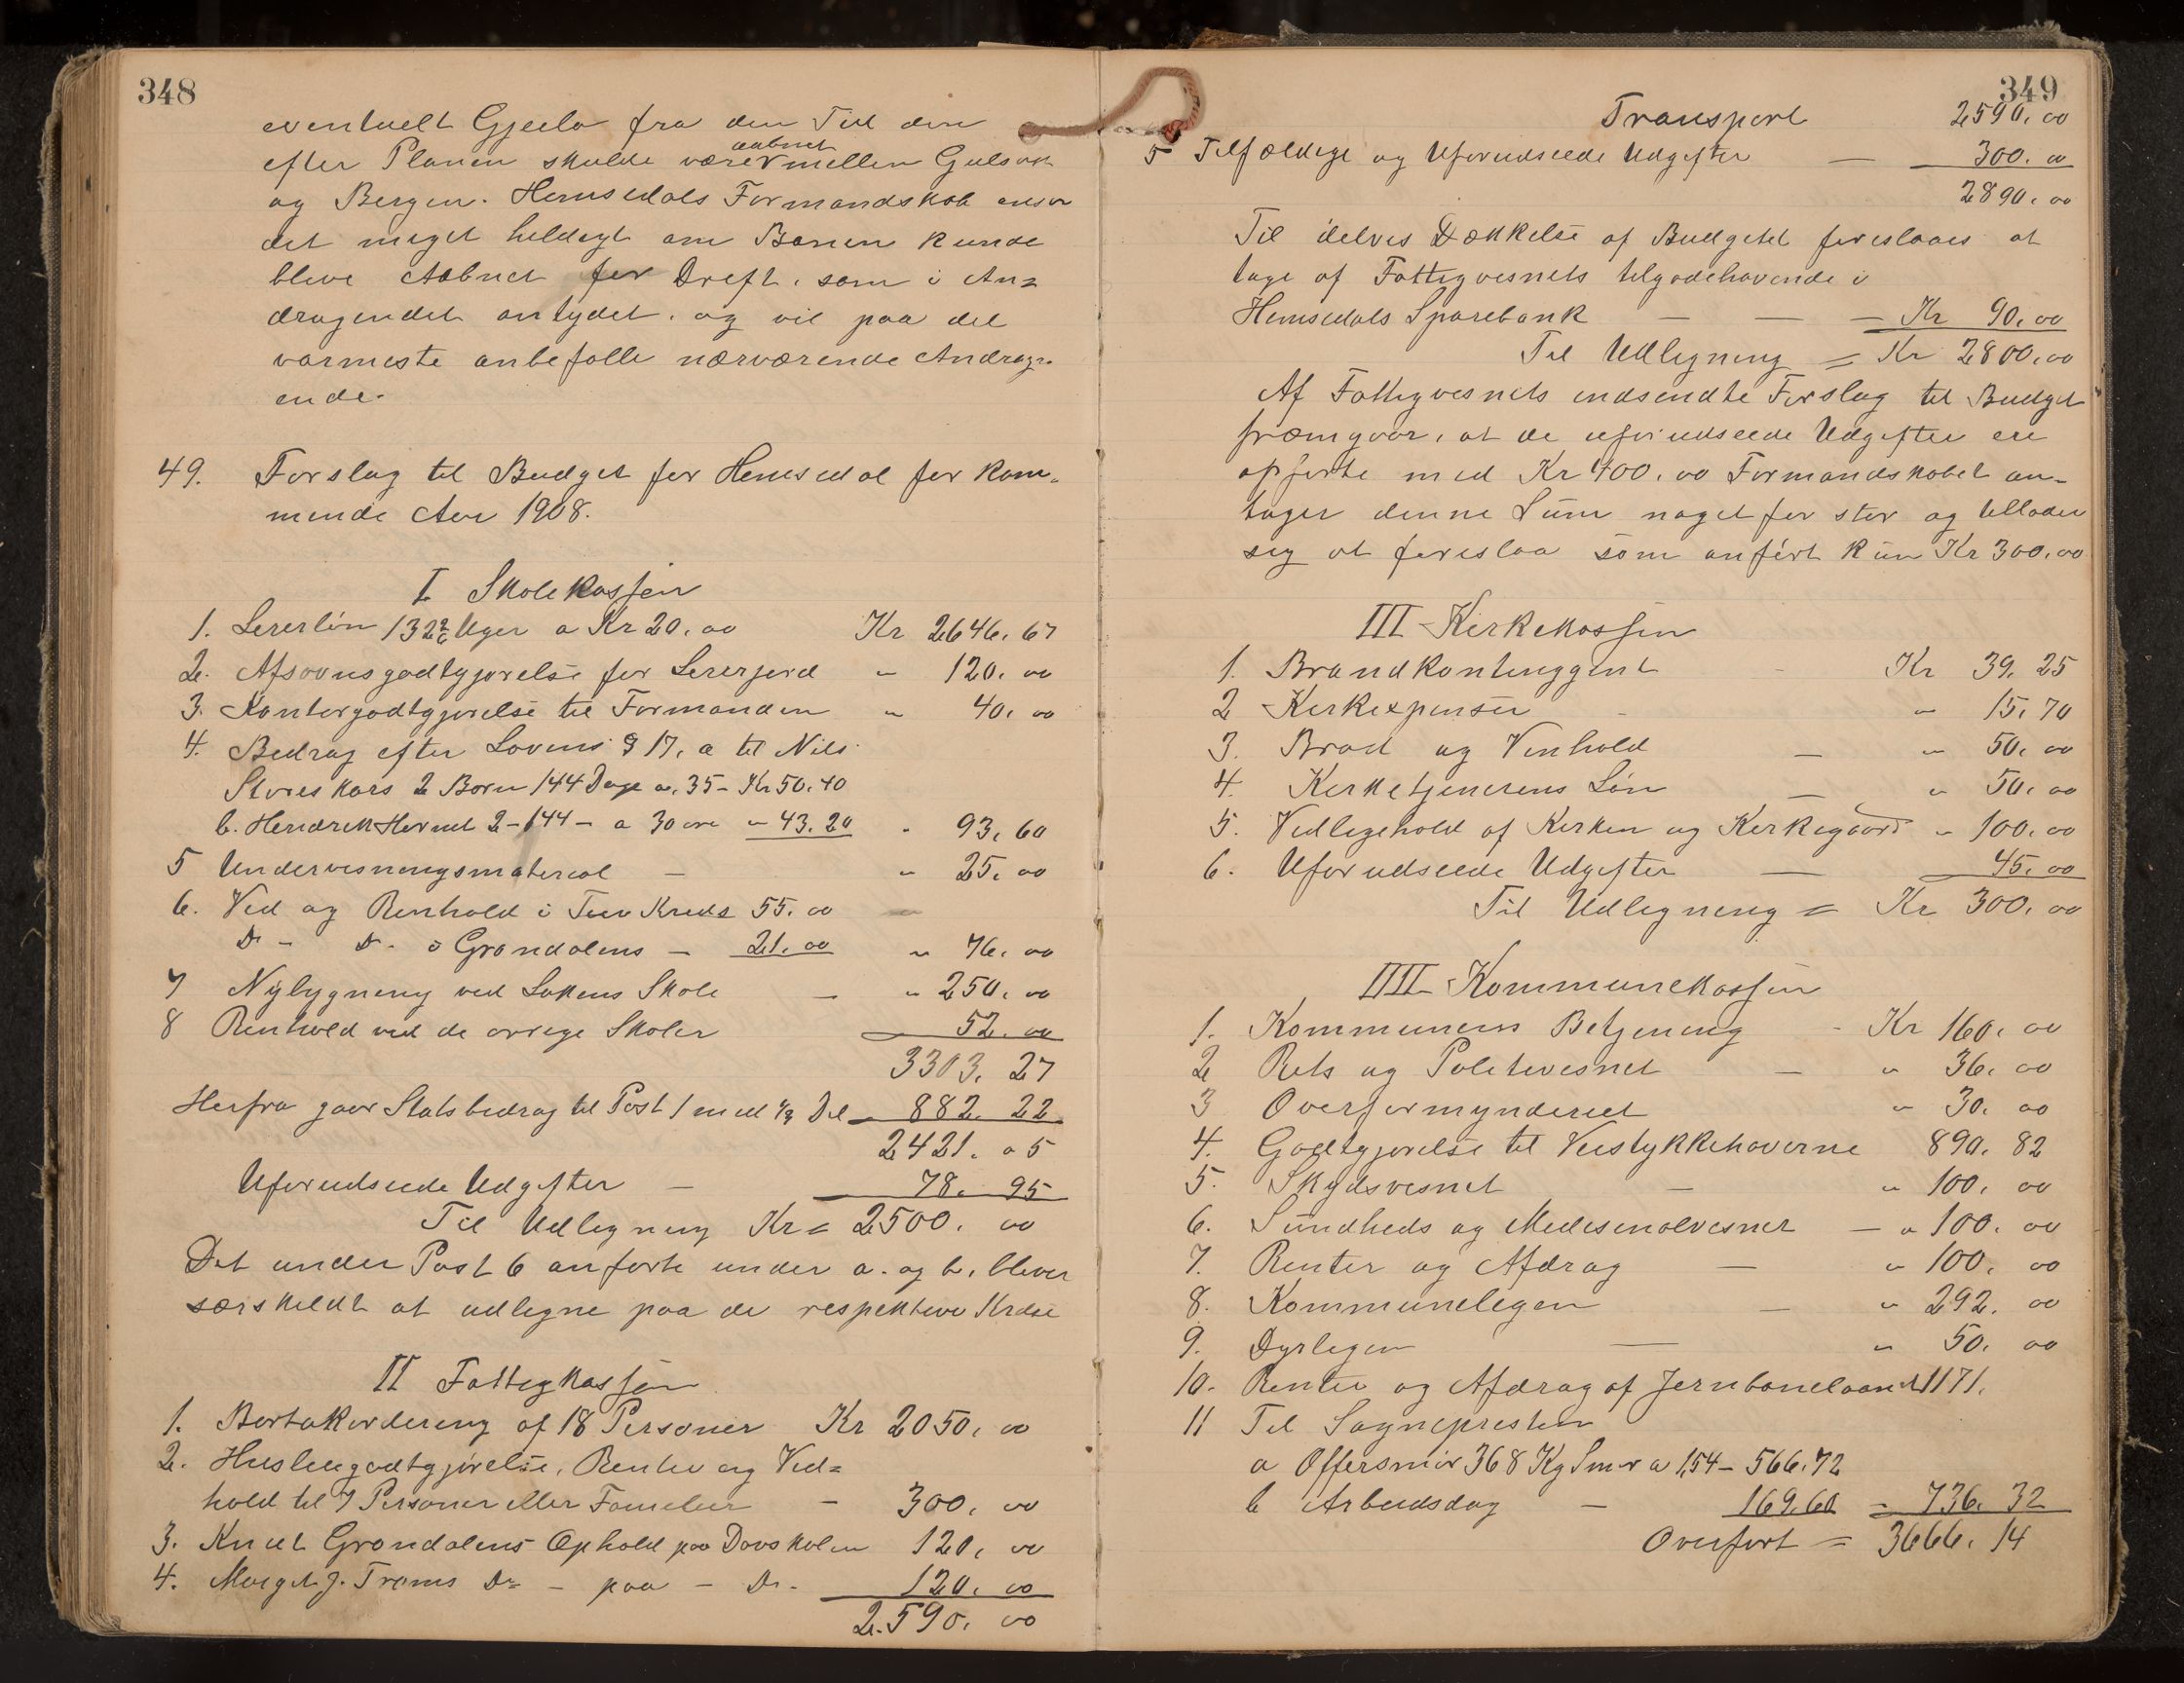 348
eventuelt Gjeilo fra den Tid den
aabnet
efter Planen skulde være mellem Gulsvik
og Bergen. Hemsedals Formandskab anser
det meget heldigt om Banen kunde
blive Aabnet for Drift, som i An=
dragendet antydet, og vil paa det
varmeste anbefalle nærværende Andrag-
ende.
49. Forslag til Budget for Hemsedal for kom-
mende Aar 1908.
I Skolekassen
1. Lererløn 132 2/6 Uger a Kr 20.00 Kr 2646.67
2. Afsavnsgodtgjørelse for Lererjord " 120.00
3. Kontorgodtgjørelse til Formanden " 40.00
4. Bedrag efter Lovens § 17, a til Nils
Storeskars 2 Børn 144 Dage a. 35 - Kr 50.40
b. Hendrek Hornet 2 - 144 - a 30 øre " 43.20 " 93.60
5 Undervisningsmaterial — " 25.00
6. Ved og Renhold i Tuv Kreds 55.00
Do - Do - i Grøndalens — 21.00 " 76.00
7 Nybygning ved Løkens Skole — " 250.00
8 Renhold ved de øvrige Skoler 52.00
3303.27
Herfra gaar Statsbedrag til Post 1 med 1/3 Del 882.22
2421.05
Uforudseede Udgifter — 78.95
Til Udligning Kr = 2500.00
Det under Post 6 anførte under a. og b. bliver
særskeldt at udligne paa de respektive Kredse
II Fattigkassen
1. Bortakordering af 18 Personer Kr 2050.00
2. Husleiegodtgjørelse, Renter og Ved=
hold til 7 Personer eller Familier — 300.00
3. Knut Grøndalens Ophold paa Døvskolen 120.00
4. Margit J. Trøms Do - paa - Do - 120.00
2.590.00
349
Transport 2590.00
5 Tilfældige og Uforudseede Udgifter — 300.00
2890.00
Til delvis Dækkelse af Budgetet foreslaaes at
tage af Fattigvesnets tilgodehavende i
Hemsedals Sparebank — — — Kr 90.00
Til Udligning = Kr 2800.00
Af Fattigvesnets indsendte Forslag til Budget
fræmgaar, at de uforudseede Udgifter ere
opførte med Kr 400.00 Formandskabet an-
tager denne Sum noget for stor og tillader
sig at foreslaa som anført kun Kr 300.00
III Kirkekassen
1. Brandkontinggent - Kr 39.25
2 Kirkexpenser - " 15.70
3. Brød og Vinhold — " 50.00
4. Kirketjenerens Løn — " 50.00
5. Vedligehold af Kirken og Kirkegaard " 100.00
6. Uforudseede Udgifter — 45.00
Til Udligning = Kr 300.00
IIII Kommunekassen
1. Kommunens Betjening - Kr 160.00
2 Rets og Politivesnet — " 36.00
3 Overformynderiet " 30.00
4. Godtgjørelse til Veistykkehaverne 890.82
5. Skydsvesnet — " 100.00
6. Sundheds og Medesinalvesnet — " 100.00
7. Renter og Afdrag — " 100.00
8. Kommunelegen — " 292.00
9. Dyrlegen — " 50.00
10. Renter og Afdrag af Jernbanelaanet 1171.
11 Til Sognepresten
a Offersmør 368 Kg Smør a 1,54 - 566.72
b Arbeidsdag — 169.60 = 736.32
Overført = 3666.14